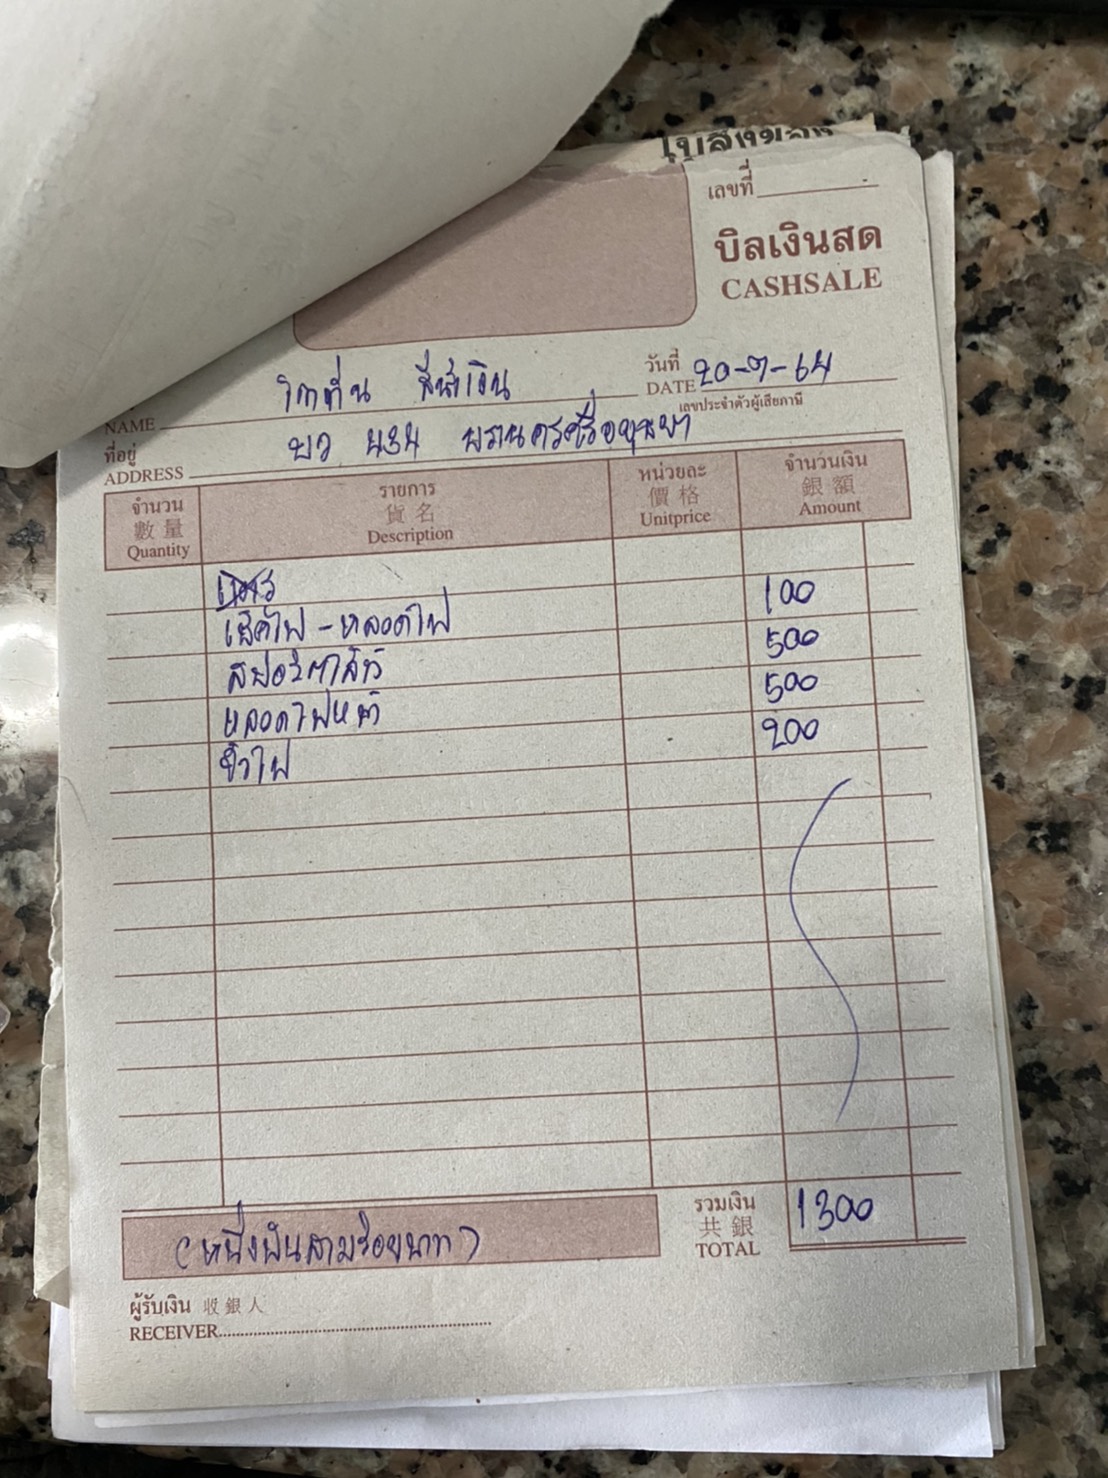 ใบสั่งของ
เลขที่
บิลเงินสด
CASHSALE
วันที่
DATE 20-7-64
NAME
เลขประจำตัวผู้เสียภาษี
ที่อยู่
ADDRESS บว 434 พระนครศรีอยุธยา
จำนวน รายการ หน่วยละ จำนวนเงิน
數量 貨名 價格 銀額
Quantity Description Unitprice Amount
เช็คไฟ - หลอดไฟ 100
สปอร์ตไลท์ 500
หลอดไฟหน้า 500
ขั้วไฟ 200
รวมเงิน
共銀
TOTAL 1300
(หนึ่งพันสามร้อยบาท)
ผู้รับเงิน 收銀人
RECEIVER